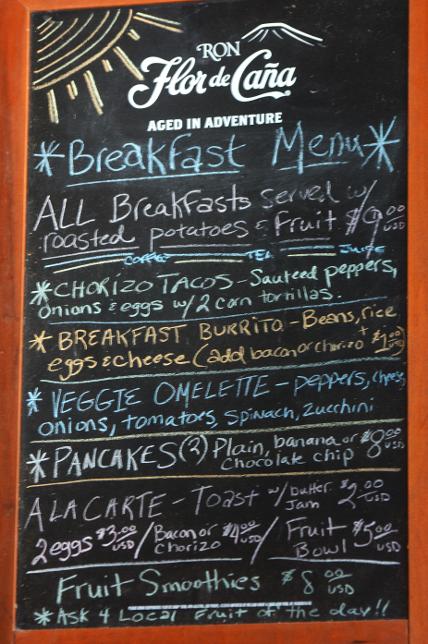 RON
Flor de Caña
AGED IN ADVENTURE
*Breakfast Menu*
ALL Breakfasts served w/
roasted potatoes & Fruit $9.00 USD
COFFEE TEA JUICE
*CHORIZO TACOS - Sauteed peppers,
onions & eggs w/ 2 corn tortillas.
*BREAKFAST BURRITO - Beans, rice
eggs & cheese (add bacon or chorizo + $1.00)
*VEGGIE OMELETTE - peppers, cheese,
onions, tomatoes, spinach, zucchini
*PANCAKES (2) Plain, banana or $8.00 USD
Chocolate chip
A LA CARTE - Toast w/ butter $2.00 USD
Jam
2 eggs $3.00 USD / Bacon or $4.00 USD / Fruit $5.00 USD
Chorizo Bowl
Fruit Smoothies $8.00 USD
*ASK 4 Local Fruit of the day!!